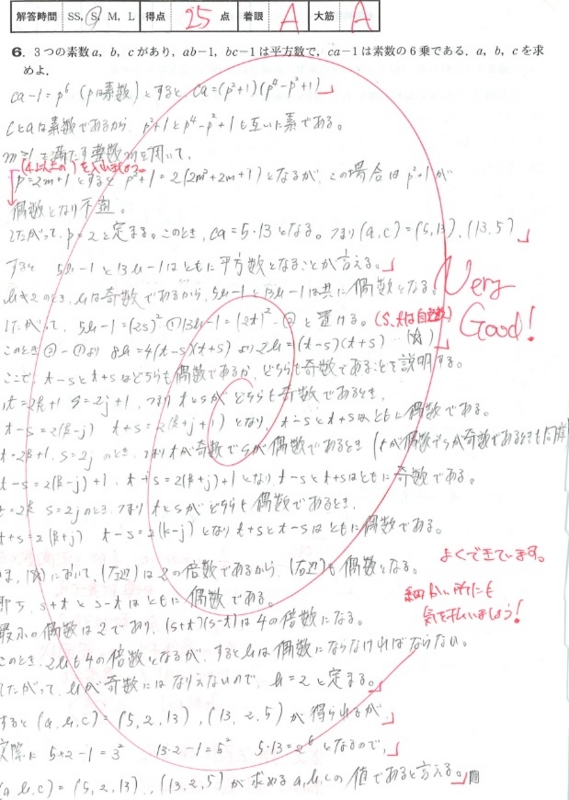 解答時間 SS, S, M, L 得点 25 点 着眼 A 大筋 A
6. 3つの素数a, b, cがあり, ab-1, bc-1は平方数で, ca-1は素数の6乗である. a, b, cを求
めよ.
ca-1=p⁶ (pは素数)とすると ca=(p²+1)(p⁴-p²+1)
cとaは素数であるから p²+1とp⁴-p²+1も互いに素である。
m≧1を満たす整数mを用いて,
p=2m+1とするとp²+1=2(2m²+2m+1)となるが, この場合はp²+1が
偶数となり不適。
したがって, p=2と定まる。このとき, ca=5・13となる。つまり(a,c)=(5,13), (13,5)
すると 5b-1と13b-1はともに平方数となることが言える。
b≠2のとき, bは奇数であるから, 5b-1と13b-1は共に偶数となる。
Very
Good!
したがって, 5b-1=(2s)²① 13b-1=(2t)²-② と置ける。(s, tは自然数)
このとき②-①より 8b=4(t-s)(t+s) より 2b=(t-s)(t+s) …(☆)
ここで, t-sとt+sはどちらも偶数であるか, どちらも奇数であることを説明する。
t=2k+1 s=2j+1, つまりtとsがどちらも奇数であるとき,
t-s=2(k-j) t+s=2(k+j+1)となり, t-sとt+sはともに偶数である。
t=2k+1, s=2jのとき, つまりtが奇数でsが偶数であるとき(tが偶数でsが奇数であるときも同様)
t-s=2(k-j)+1, t+s=2(k+j)+1となり t-sとt+sはともに奇数である。
t=2k s=2jのとき, つまりtとsがどちらも偶数であるとき,
t+s=2(k+j) t-s=2(k-j)となりt+sとt-sはともに偶数である。
よくできています。
(☆)において, (左辺)は2の倍数であるから, (右辺)も偶数となる。
細かい所にも
気を払いましょう!
即ち, s+tとs-tはともに偶数である。
最小の偶数は2であり, (s+t)(s-t)は4の倍数になる。
このとき, 2bも4の倍数となるが, するとbは偶数にならなければならない。
したがって, bが奇数にはなりえないので, b=2と定まる。
すると(a,b,c)=(5,2,13), (13,2,5)が得られるが,
実際に 5・2-1=3² 13・2-1=5² 5・13 =2⁶となるので,
(a,b,c)=(5,2,13), (13,2,5)が求めるa,b,cの値であると言える。